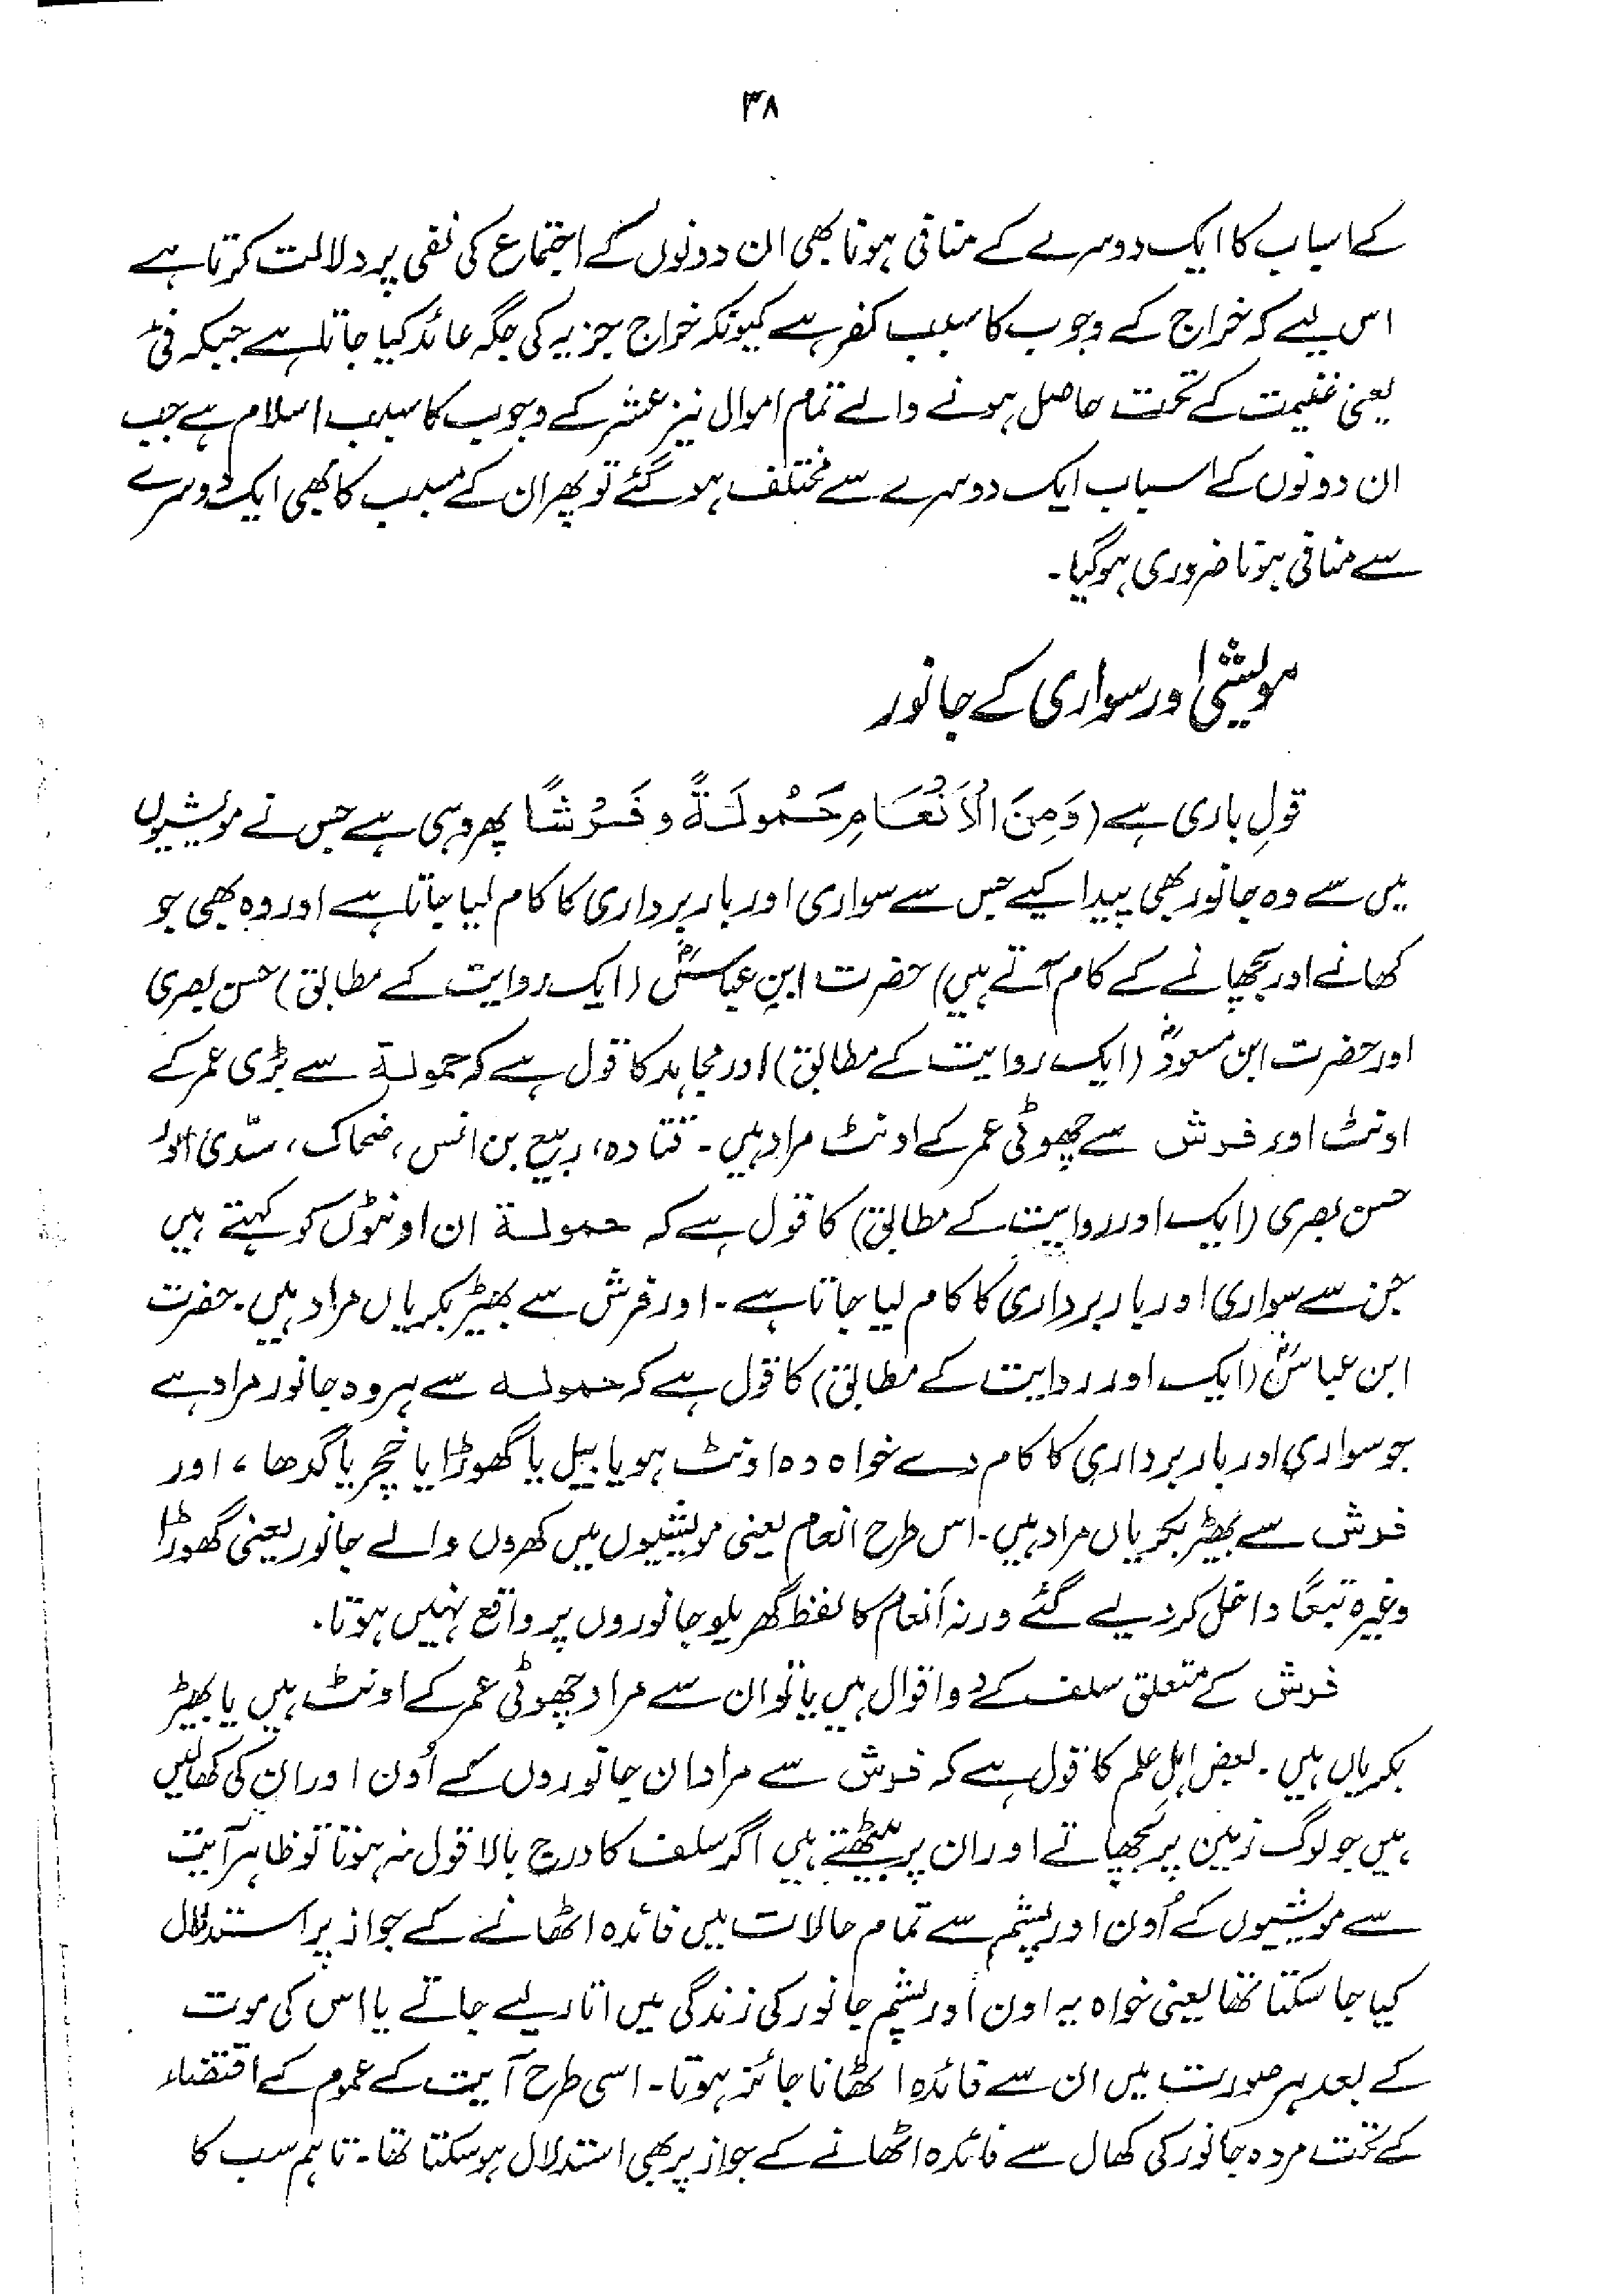 ۳۸
کے اسباب کا ایک دوسرے کے منافی ہونا بھی ان دونوں کے اجتماع کی نفی پر دلالت کرتا ہے
اس لیے کہ خراج کے وجوب کا سبب کفر ہے کیونکہ خراج جزیہ کی جگہ عائد کیا جاتا ہے جبکہ فئ
یعنی غنیمت کے تحت حاصل ہونے والے تمام اموال نیز عشر کے وجوب کا سبب اسلام ہے جب
ان دونوں کے اسباب ایک دوسرے سے مختلف ہو گئے تو پھر ان کے سبب کا بھی ایک دوسرے
سے منافی ہونا ضروری ہوگیا۔
مویشی اور سواری کے جانور
قولِ باری ہے (وَمِنَ الْاَنْعَامِ حَمُوْلَةً وَ فَرْشًا پھر وہی ہے جس نے مویشیوں
میں سے وہ جانور بھی پیدا کیے جس سے سواری اور باربرداری کا کام لیا جاتا ہے اور وہ بھی جو
کھانے اور بچھانے کے کام آتے ہیں) حضرت ابن عباسؓ (ایک روایت کے مطابق) حسن بصری
اور حضرت ابن مسعودؓ (ایک روایت کے مطابق) اور مجاہد کا قول ہے کہ حمولۃ سے بڑی عمر کے
اونٹ اور فرش سے چھوٹی عمر کے اونٹ مراد ہیں۔ قتادہ، ربیع بن انس، ضحاک، سدّی اور
حسن بصری (ایک اور روایت کے مطابق) کا قول ہے کہ حمولۃ ان اونٹوں کو کہتے ہیں
جن سے سواری اور باربرداری کا کام لیا جاتا ہے۔ اور فرش سے بھیڑ بکریاں مراد ہیں۔ حضرت
ابن عباسؓ (ایک اور روایت کے مطابق) کا قول ہے کہ حمولہ سے ہر وہ جانور مراد ہے
جو سواری اور باربرداری کا کام دے خواہ وہ اونٹ ہو یا بیل یا گھوڑا یا خچر یا گدھا، اور
فرش سے بھیڑ بکریاں مراد ہیں۔ اس طرح انعام یعنی مویشیوں میں کھروں والے جانور یعنی گھوڑا
وغیرہ تبعًا داخل کر دیے گئے ورنہ اَنعام کا لفظ گھریلو جانوروں پر واقع نہیں ہوتا۔
فرش کے متعلق سلف کے دو اقوال ہیں یا تو ان سے مراد چھوٹی عمر کے اونٹ ہیں یا بھیڑ
بکریاں ہیں۔ بعض اہل علم کا قول ہے کہ فرش سے مراد ان جانوروں کے اُون اور ان کی کھالیں
ہیں جو لوگ زمین پر بچھاتے اور ان پر بیٹھتے ہیں اگر سلف کا درج بالا قول نہ ہوتا تو ظاہر آیت
سے مویشیوں کے اُون اور پشم سے تمام حالات میں فائدہ اٹھانے کے جواز پر استدلال
کیا جا سکتا تھا یعنی خواہ یہ اون اور پشم جانور کی زندگی میں اتار لیے جاتے یا اس کی موت
کے بعد ہر صورت میں ان سے فائدہ اٹھانا جائز ہوتا۔ اسی طرح آیت کے عموم کے اقتضاء
کے تحت مردہ جانور کی کھال سے فائدہ اٹھانے کے جواز پر بھی استدلال ہو سکتا تھا۔ تاہم سب کا